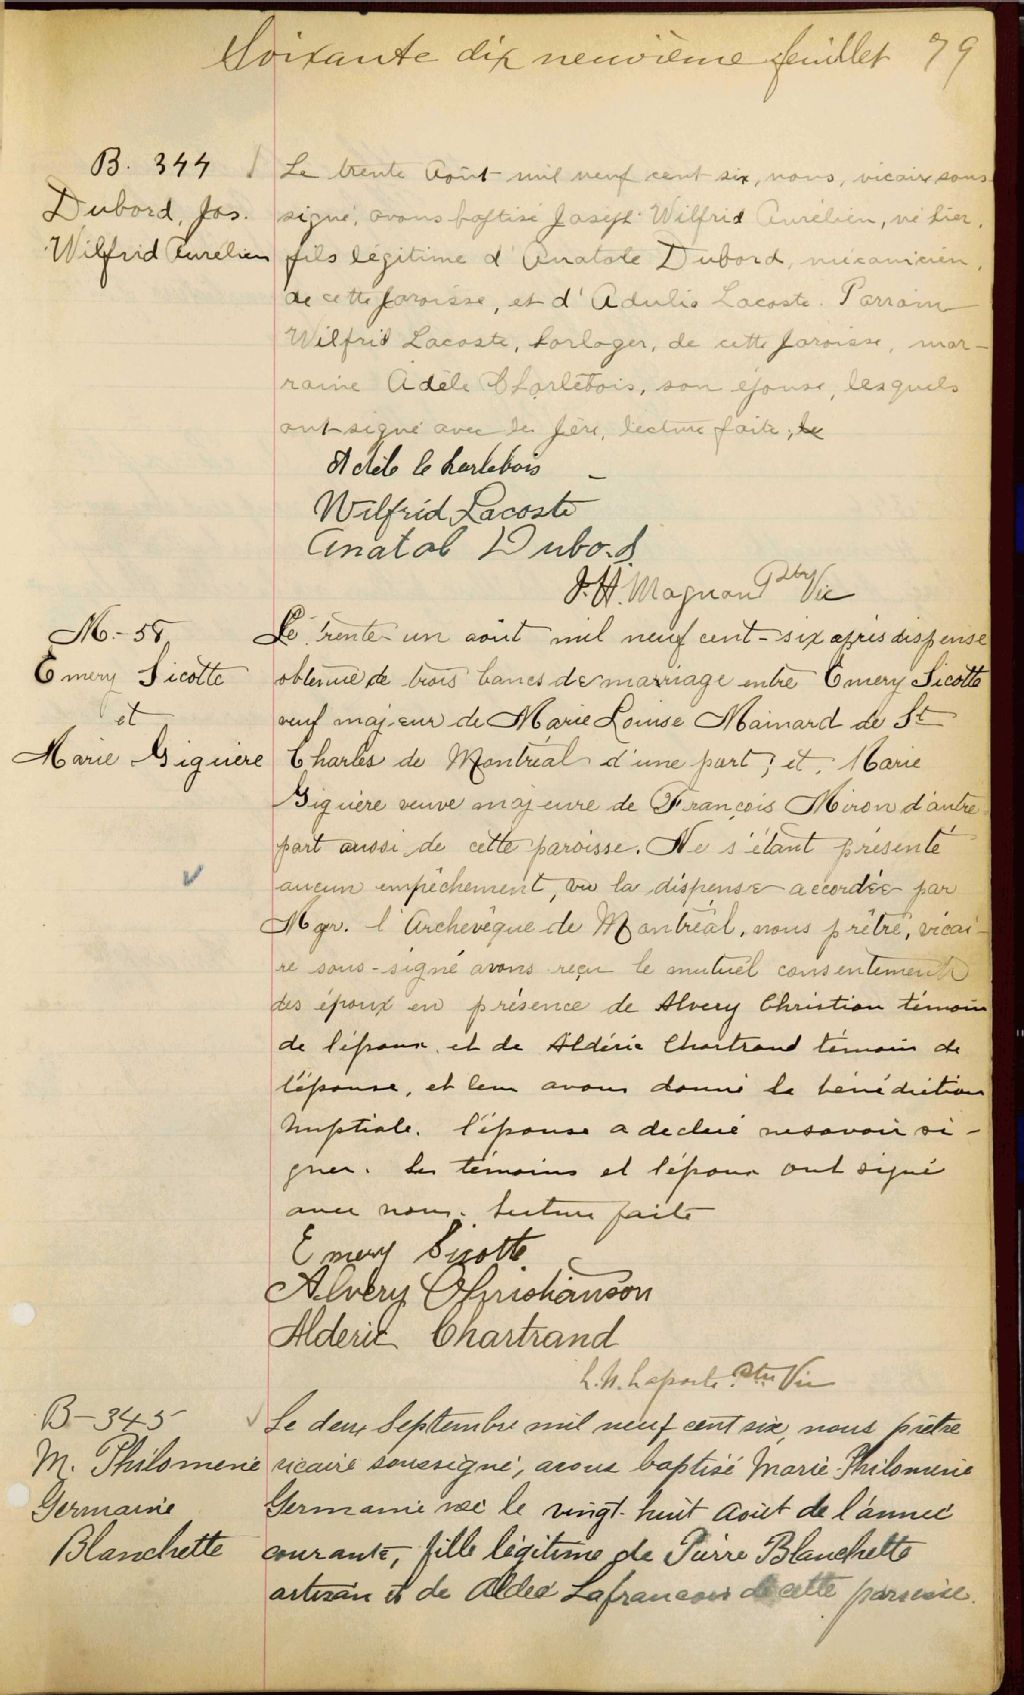 Soixante dix neuvième feuillet 79
B. 344
Dubord, Jos.
Wilfrid Aurélien
Le trente Août mil neuf cent six, nous, vicaire sous-
signé, avons baptisé Joseph Wilfrid Aurélien, né hier,
fils légitime d'Anatole Dubord, mécanicien,
de cette paroisse, et d'Adulia Lacoste. Parrain
Wilfrid Lacoste, horloger, de cette paroisse, mar-
raine Adèle Charlebois, son épouse, lesquels
ont signé avec le père, lecture faite,
Adèle Charlebois
Wilfrid Lacoste
Anatol Dubord
J. H. Magnan Ptre Vic
M.- 58
Emery Sicotte
et
Marie Giguère
Le trente-un août mil neuf cent-six après dispense
obtenue de trois bancs de mariage entre Emery Sicotte
veuf majeur de Marie Louise Mainard de St
Charles de Montréal d'une part; et, Marie
Giguère veuve majeure de François Miron d'autre
part aussi de cette paroisse. Ne s'étant présenté
aucun empêchement, vu la dispense accordée par
Mgr. l'Archevêque de Montréal, nous prêtre, vicai-
re sous-signé avons reçu le mutuel consentement
des époux en présence de Alvery Christian témoin
de l'époux et de Aldéric Chartrand témoin de
l'épouse, et leur avons donné la bénédiction
nuptiale. l'épouse a declué ne savoir si-
gner. Les témoins et l'époux ont signé
avec nous. Lecture faite
Emery Sicotte
Alvery Christianson
Alderic Chartrand
L. N. Laporte Ptre Vic
B- 345
M. Philomenie
Germaine
Blanchette
Le deux Septembre mil neuf cent six, nous prêtre
vicaire soussigné, avons baptisé Marie-Philomenie
Germanie née le vingt-huit Août de l'année
courante, fille légitime de Pierre Blanchette
artisan et de Aldéa Lafrancois de cette paroisse.